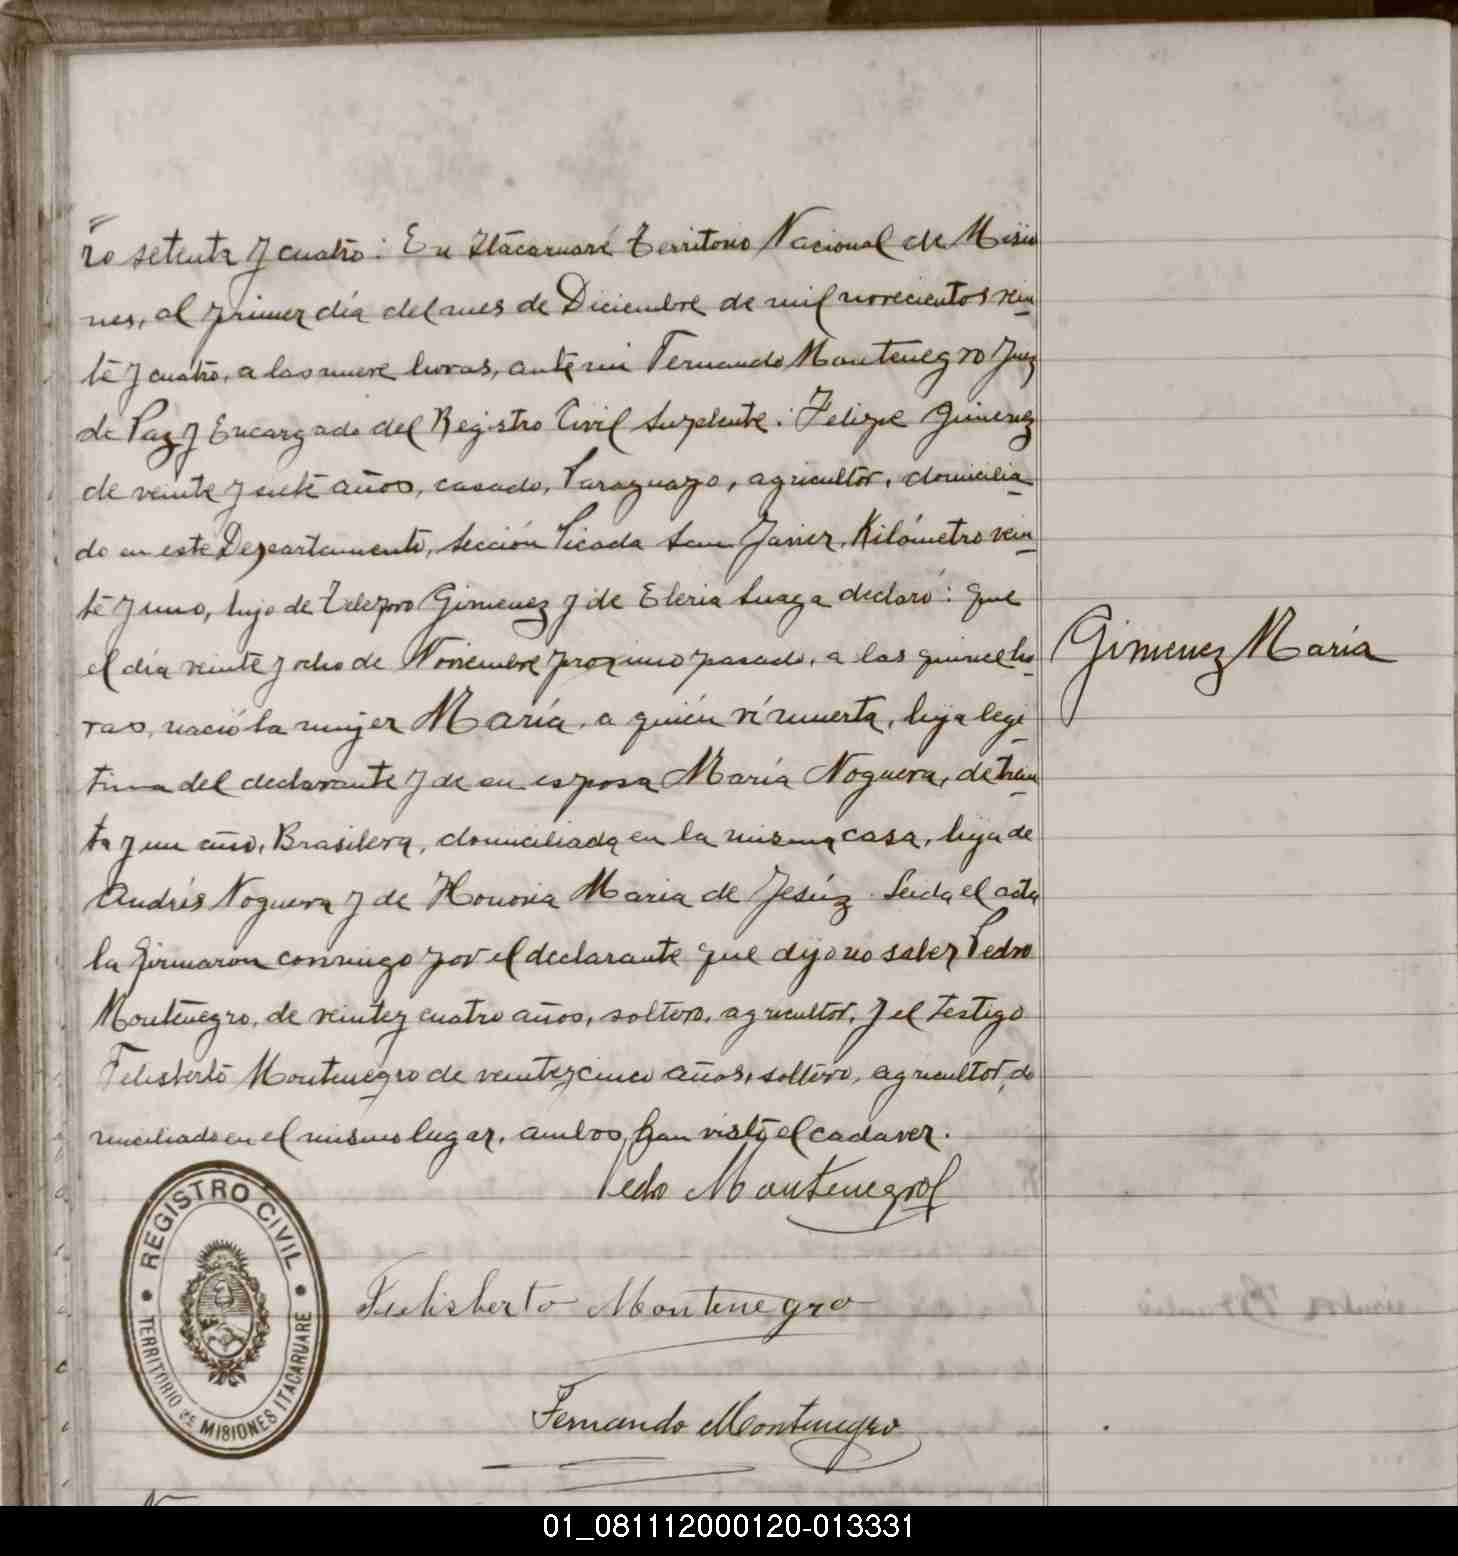 ro setenta y cuatro: En Itacaruaré Territorio Nacional de Misio
nes, al primer día del mes de Diciembre de mil novecientos vein
te y cuatro, a las nueve horas, ante mi Fernando Montenegro Juez
de Paz y Encargado del Registro Civil Suplente: Felipe Gimenez
de veinte y siete años, casado, Paraguayo, agricultor, domicilia
do en este Departamento, Sección Picada San Javier, Kilómetro vein
te y uno, hijo de Gimenez y de declaró: que
el día veinte y ocho de Noviembre proximo pasado, a las quince ho
ras, nació la mujer María, a quién ví muerta, hija legi
tima del declarante y de su esposa María Noguera, de trein
ta y un año, Brasilera, domiciliada en la misma casa, hija de
Andrés Noguera y de Honoria Maria de Jesúz. Leida el acta
la firmaron conmigo por el declarante que dijo no saber Pedro
Montenegro, de veinte y cuatro años, soltero, agricultor, y el testigo
Felisberto Montenegro de veinte y cinco años, soltero, agricultor, do
miciliado en el mismo lugar, ambos han visto el cadaver.
Gimenez María
Pedro Montenegro
Felisberto Montenegro
Fernando Montenegro
REGISTRO CIVIL
TERRITORIO DE MISIONES ITACARUARE
01_081112000120-013331